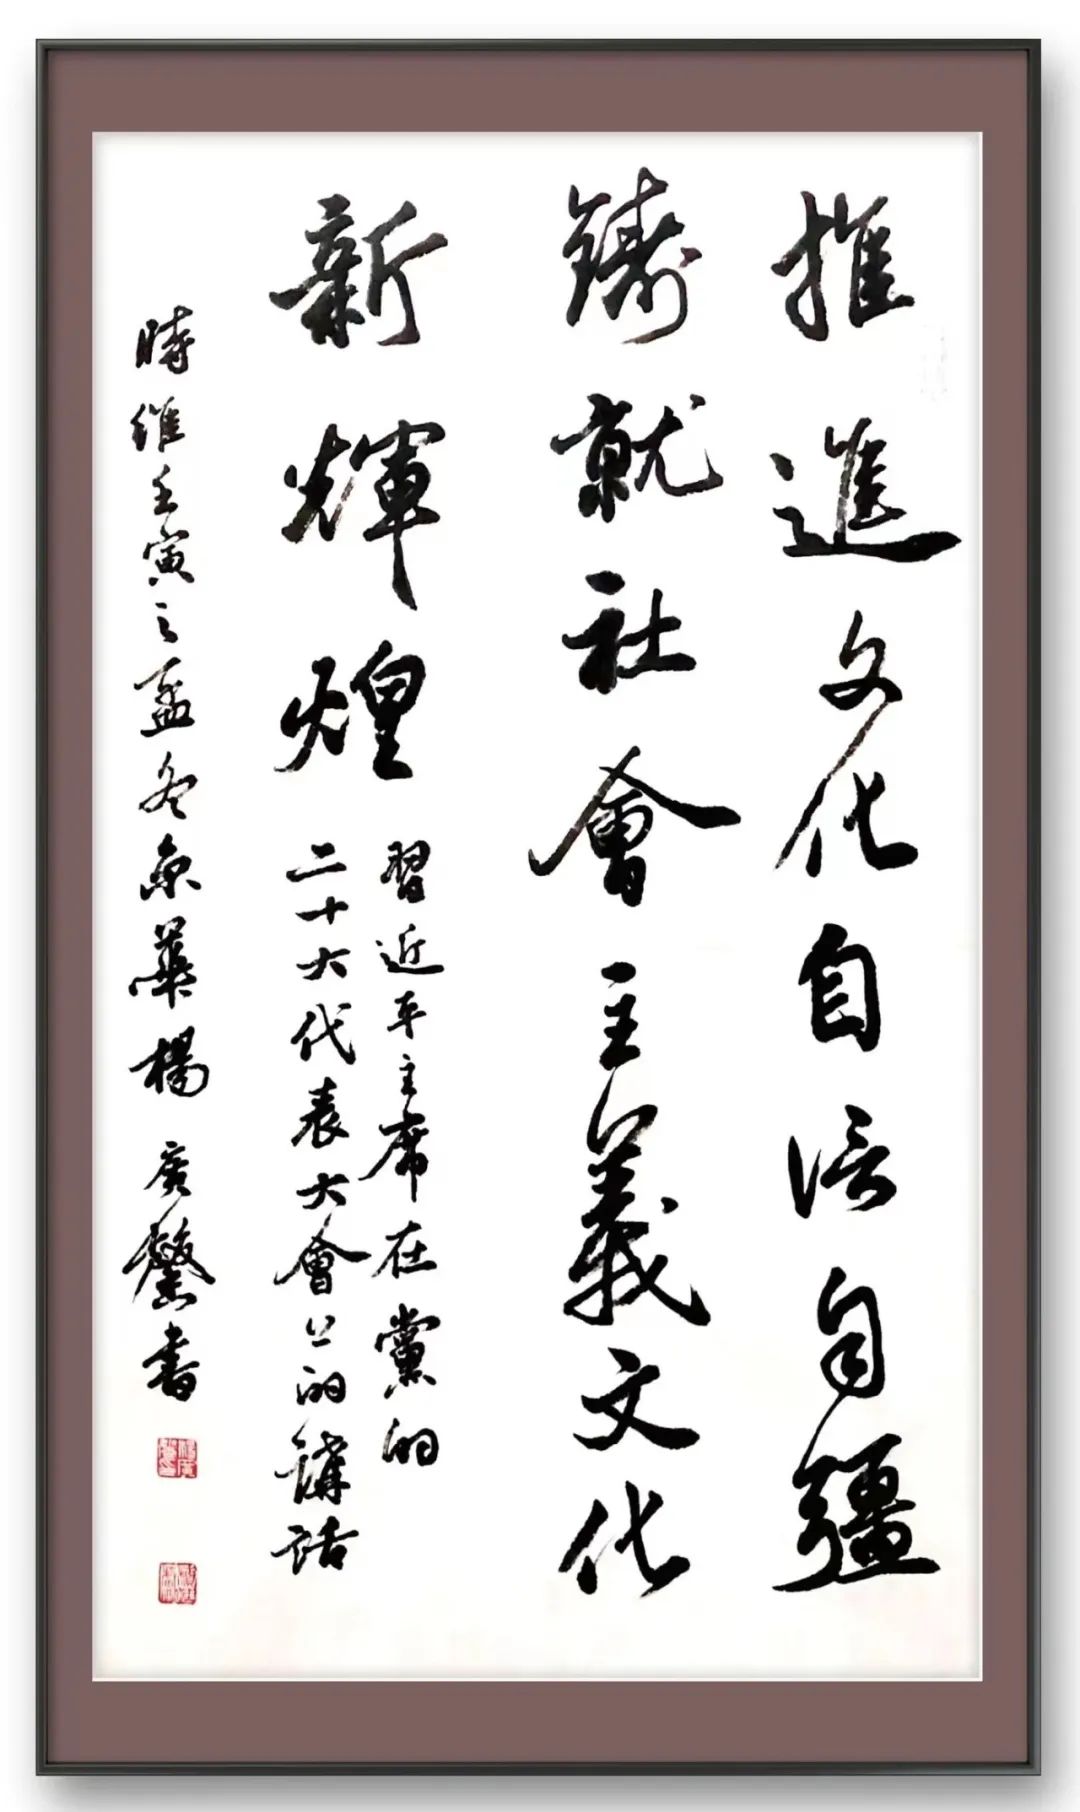 推進文化自信自彊
鑄就社會主義文化
新輝煌
習近平主席在黨的
二十大代表大會上的講話
時維壬寅之孟冬京華楊廣馨書